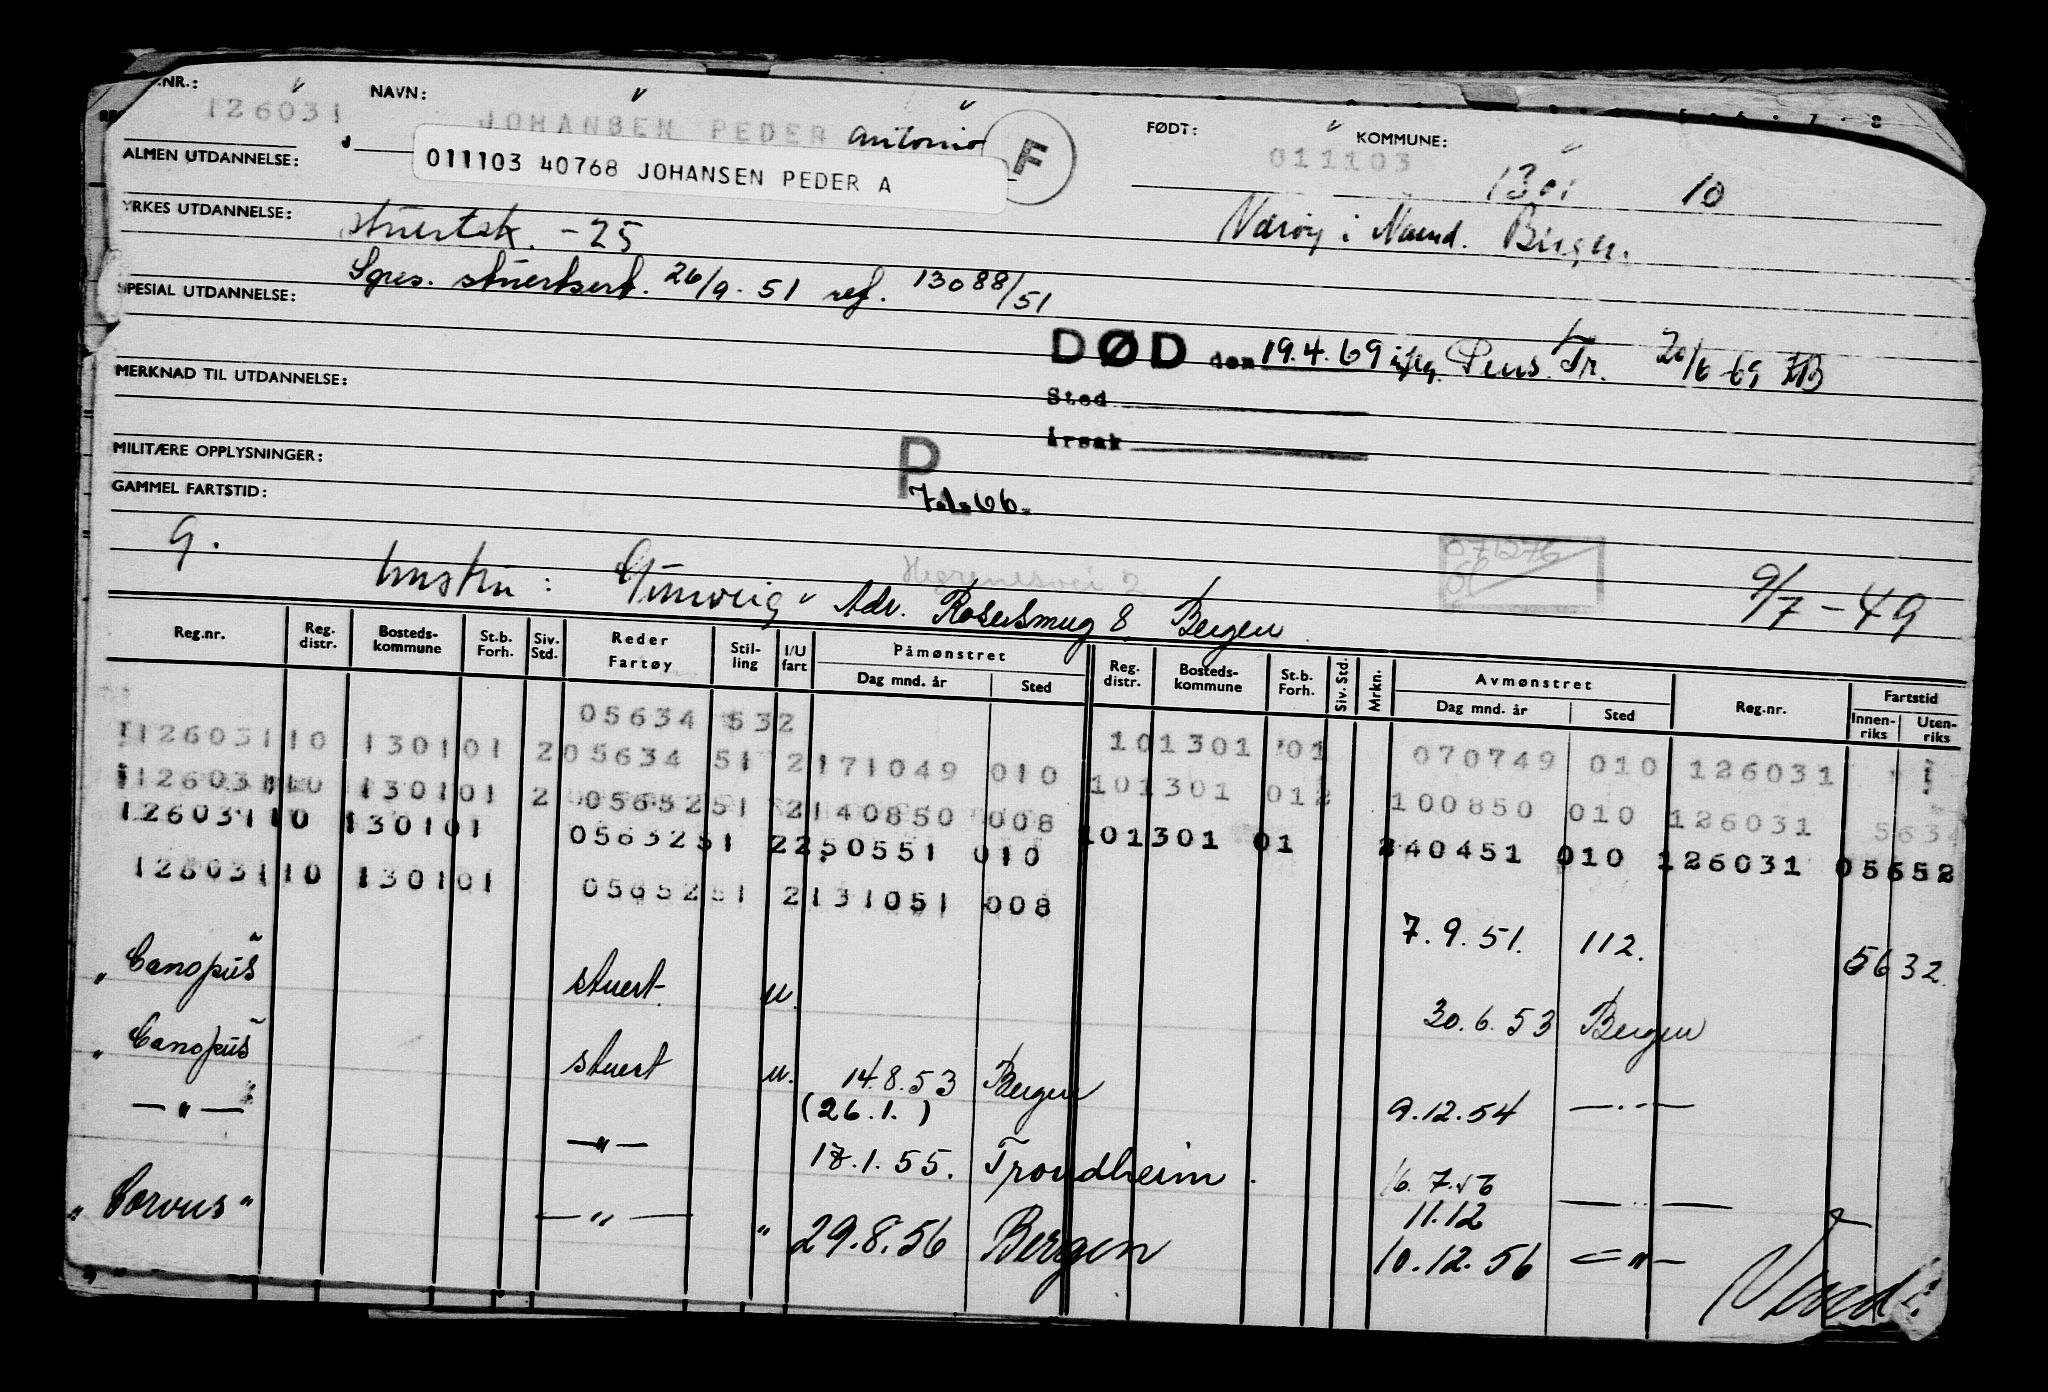 .NR.: 126031 NAVN: JOHANSEN PEDER Antonio F FØDT: 011103 KOMMUNE: 1301 10
011103 40768 JOHANSEN PEDER A
ALMEN UTDANNELSE:
YRKES UTDANNELSE: stuertsk. -25
Værøy i Namd. Bergen.
Spes. stuertsert. 26/9-51 ref. 13088/51
SPESIAL UTDANNELSE:
DØD den 19.4.69 iflg. Pens. Tr. 20/6-69
MERKNAD TIL UTDANNELSE:
Sted
Årsak
MILITÆRE OPPLYSNINGER:
P
7.1.66.
GAMMEL FARTSTID:
g.
hustru: Gunveig Adr. Rosesmug 8, Bergen
9/7-49
Reg.nr. Reg. distr. Bosteds-kommune St.b. Forh. Siv. Std. Reder Fartøy Stil-ling I/U fart Påmønstret Dag mnd. år Sted Reg. distr. Bosteds-kommune St.b. Forh. Siv. Std. Mrkn. Avmønstret Dag mnd. år Sted Reg.nr. Fartstid Innen-riks Uten-riks
05634 532 101301 01 070749 010 126031
126031 10 1301 01 2 05634 51 2 171049 010 101301 012 100850 010 126031 5634
126031 10 1301 01 2 05652 51 2 140850 008 101301 01 240451 010 126031 05652
126031 10 1301 01 05632 51 2 250551 010 7.9.51. 112. 5632
126031 10 1301 01 05652 51 2 131051 008
"Canopus" stuert. u. 30.6.53 Bergen
"Canopus" stuert u. 14.8.53 Bergen 9.12.54 —"—
(26.1.)
—"— —"— 18.1.55. Trondheim. 16.7.56 —"—
11.12
"Corvus" —"— " 29.8.56 Bergen 10.12.56 —"—
Vend!